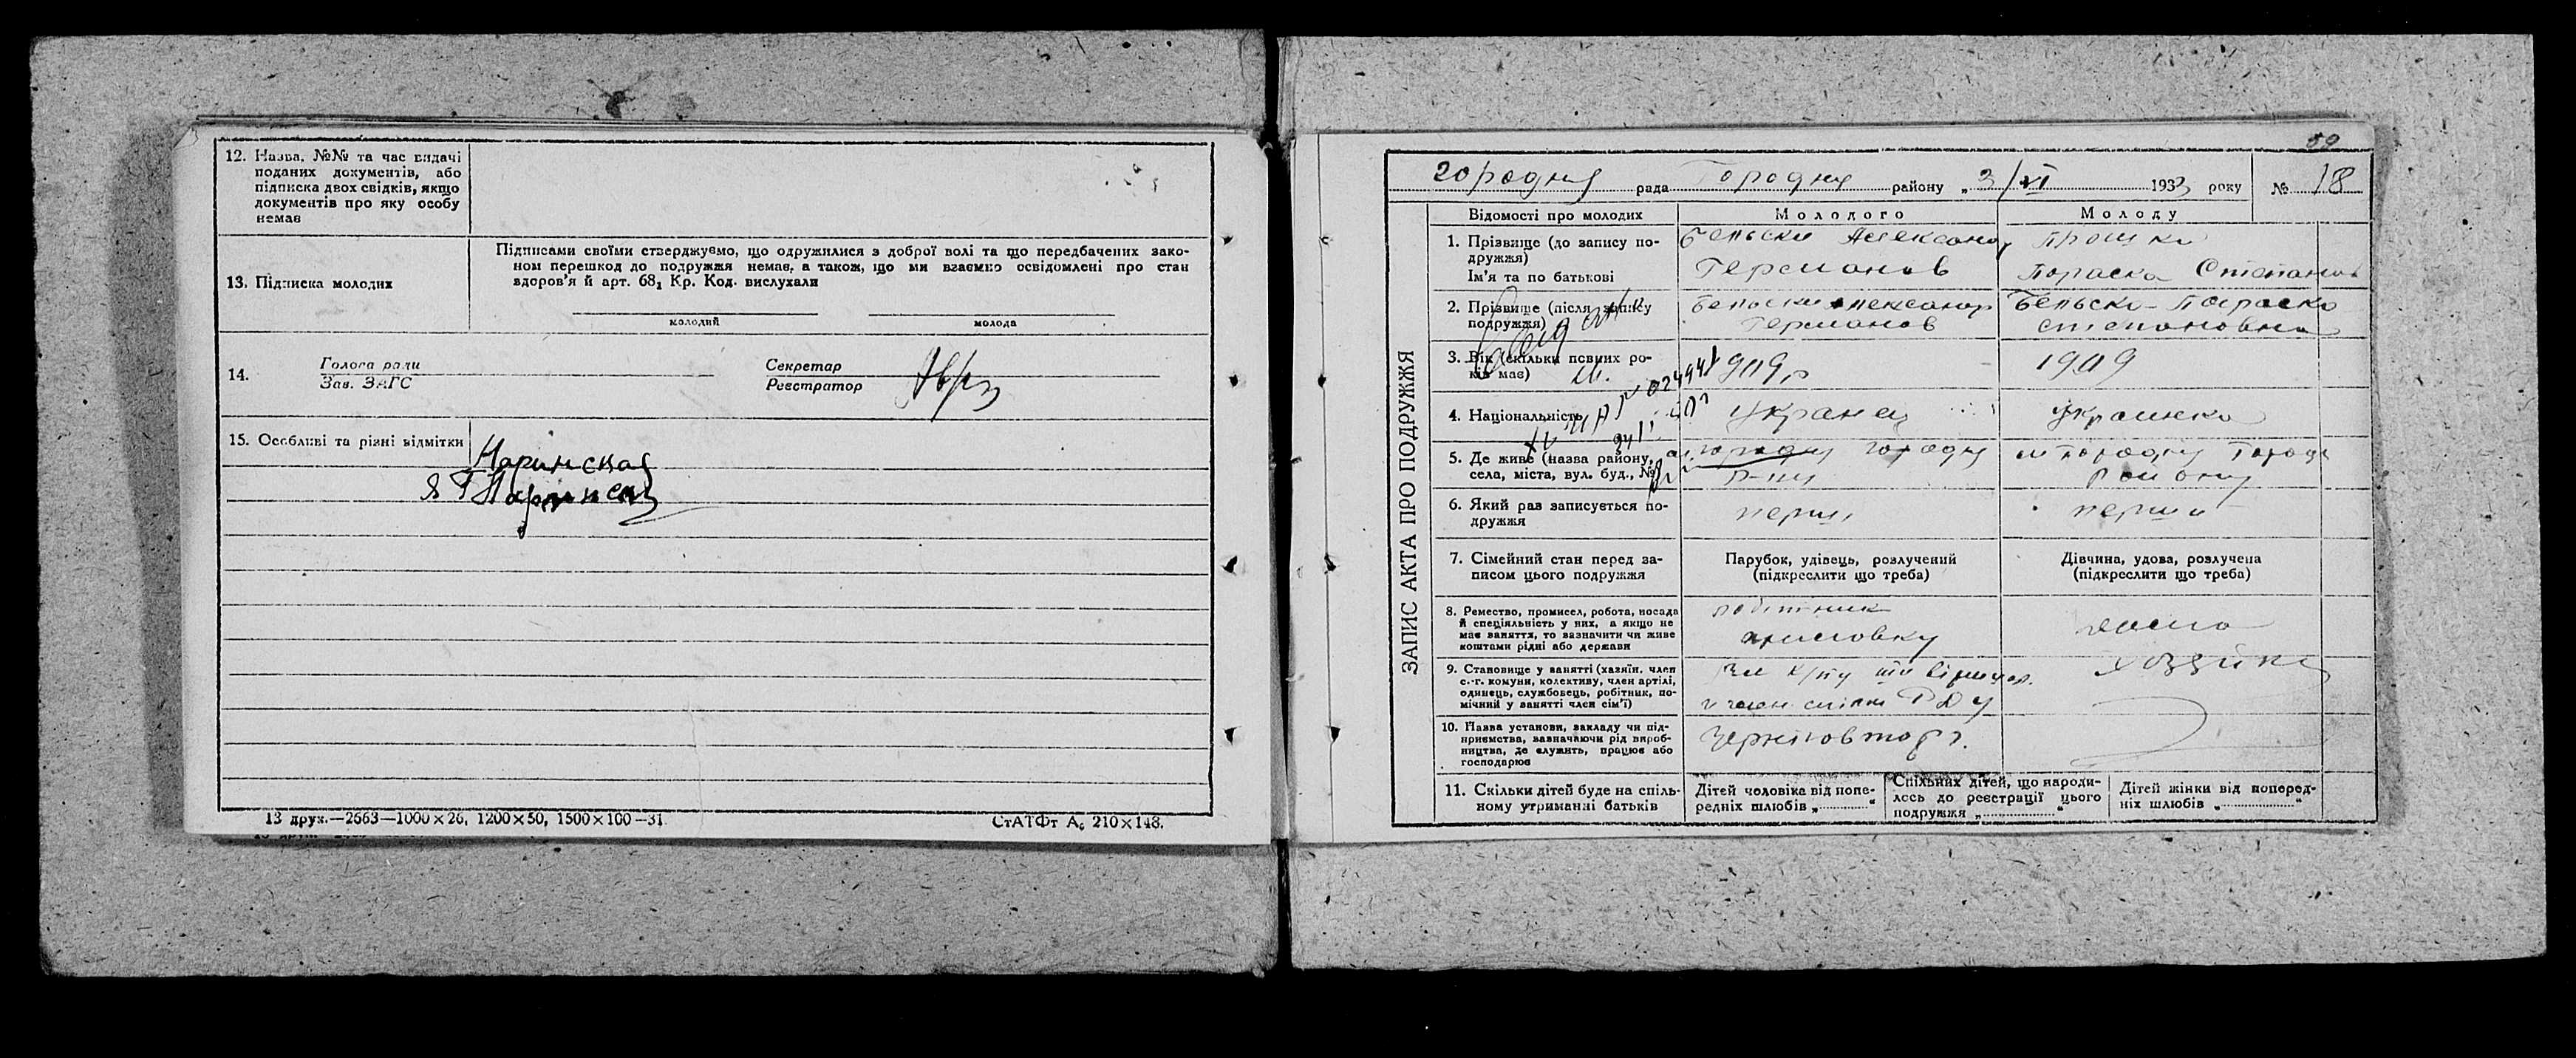 12. Назва, №№ та час видачі
поданих документів, або
підписка двох свідків, якщо
документів про яку особу
немає
13. Підписка молодих
Підписами своїми стверджуємо, що одружилися з доброї волі та що передбачених зако-
ном перешкод до подружжя немає, а також, що ми взаємно освідомлені про стан
здоров'я й арт. 68, Кр. Код. вислухали
молодий
молода
14.
Голова ради
Зав. ЗАГС
Секретар
Реєстратор
15. Особливі та різні відмітки
13 друк.—2663—1000×26, 1200×50, 1500×100—31
СтАТФт А₆ 210×148.
59
рада Городня району „ 3/VI 1933 року № 18
ЗАПИС АКТА ПРО ПОДРУЖЖЯ
Відомості про молодих
Молодого
Молоду
1. Прізвище (до запису по-
дружжя)
Ім'я та по батькові
Бельски Александр
Германов
Параска Степанов
2. Прізвище (після запису
подружжя)
Бельски Александр
Германов
Бельско- Параско
Степановна
3. Вік (скільки повних ро-
ків має)
1909 р
1909
4. Національність
Укранец
Украинка
5. Де живе (назва району,
села, міста, вул. буд., №
м Городну Городн
Р-ну
м Городну Городн
Району
6. Який раз записується по-
дружжя
перши
перши
7. Сімейний стан перед за-
писом цього подружжя
Парубок, удівець, розлучений
(підкреслити що треба)
Дівчина, удова, розлучена
(підкреслити що треба)
8. Ремество, промисел, робота, посада
й спеціяльність у них, а якщо не
має заняття, то зазначити чи живе
коштами рідні або держави
робітник
домо
9. Становище у занятті (хазяїн, член
с.-г. комуни, колективу, член артілі,
одинець, службовець, робітник, по-
мічний у занятті член сім'ї)
хозяйка
10. Назва установи, закладу чи під-
приємства, зазначаючи рід вироб-
ництва, де служить, працює або
господарює
11. Скільки дітей буде на спіль-
ному утриманні батьків
Дітей чоловіка від попе-
редніх шлюбів „ “
Спільних дітей, що народи-
лось до реєстрації цього
подружжя „ “
Дітей жінки від поперед-
ніх шлюбів „ “